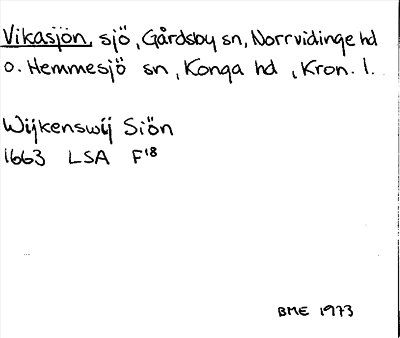 Vikasjön, sjö, Gårdsby sn, Norrvidinge hd
o. Hemmesjö sn, Konga hd, Kron. l.
Wijkenswij Siön
1663 LSA F18
BME 1973